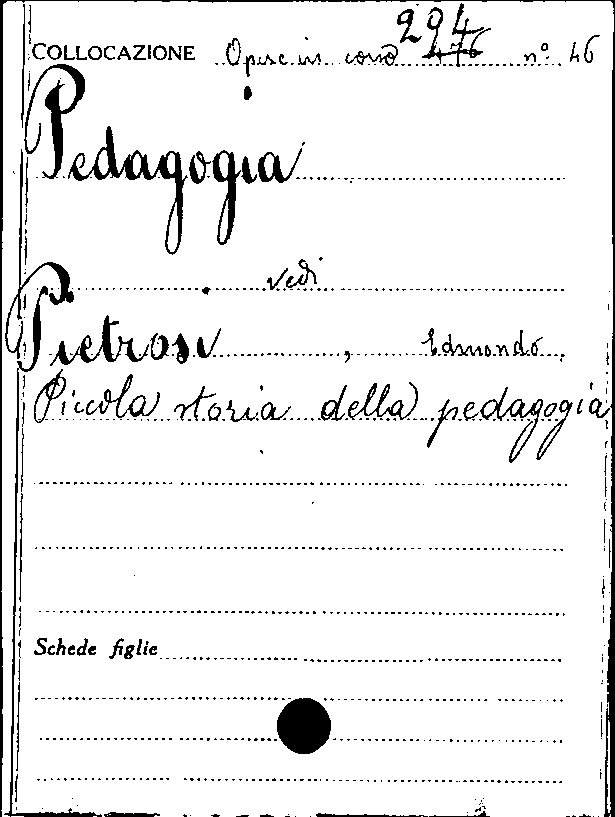 294
COLLOCAZIONE Opere in corso 476 n° 46
Pedagogia
vedi
Pietrosi, Edmondo.
Piccola storia della pedagogia
Schede figlie